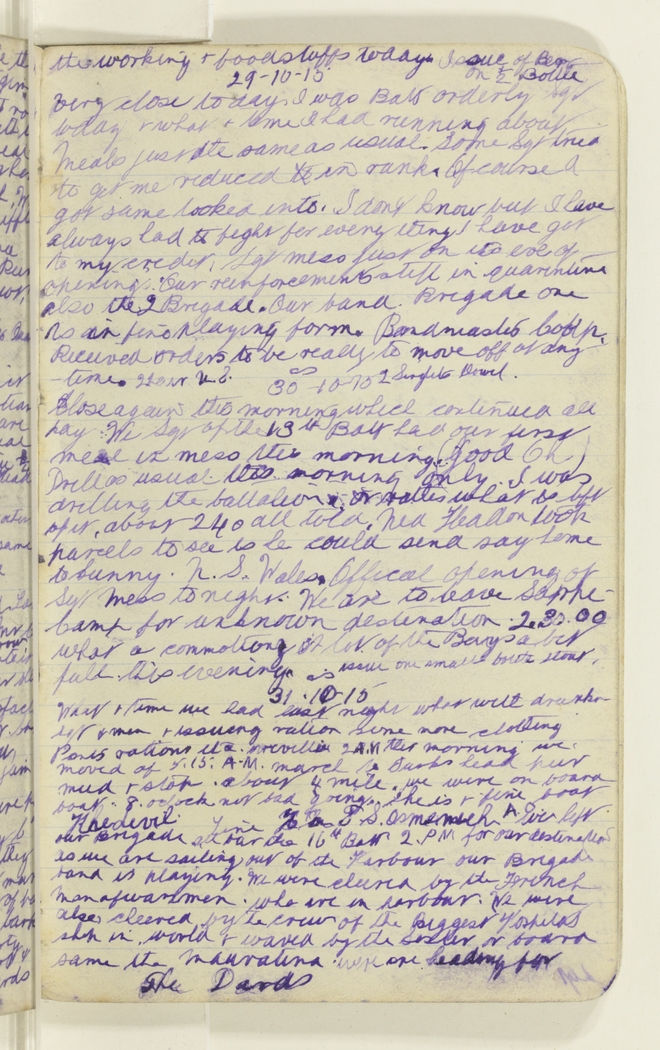 the working + foodstuffs today. Issue of Beer
29-10-15 on ½ Bottle
Very close today. I was Batt orderly Sgt
today + what a time I had running about.
Meals just the same as usual. Some Sgt tried
to get me reduced in rank. Of course I
got same looked into. I dont know but I have
always had to fight for every thing I have got
to my credit. Sgt mess just on its eve of
opening. Our reinforcements still in quarintine
also the 2 Brigade. Our band. Brigade one
is in fine playing form. Bandmaster Coop.
Received orders to be ready to move off at any
time. 30-10-15 2 Singlets
Close again this morning which continued all
day. We Sgt of the 13th Batt had our first
meal in mess this morning. (Good Oh)
Drill as usual this morning only. I was
drilling the battalion, or rather what is left
of it, about 240 all told. Ned took
parcels to see is he could send say home
to bunny. N. S. Wales. Offical opening of
Sgt mess tonight. We are to leave Sarphi
Camp for unknown destination 2.30.00
what a commotion. A lot of the Boys a bit
full this evening. issue one small bottle stout.
31-10-15
What a time we had last night what with drunken
sgt + men + issueing ration some more clothing
rations etc. Greveille 2 A.M this morning we
moved of 5.15. A.M. march to
mud + slop. about 4 mile. we were on board
boat. 8. oclock not bad going. She is a fine boat
line H.M.T.S. Osmanieh. We left
our Brigade all bar the 16th Batt 2. P.M. for our destination
as we are sailing out of the Harbour our Brigade
band is playing. We were cheered by the French
manofwarsmen. who are in harbour. We were
also cheered by the crew of the Biggest Hospital
ship in world + waved by the Sister on board
same the Mauratina we are heading for
The Dards